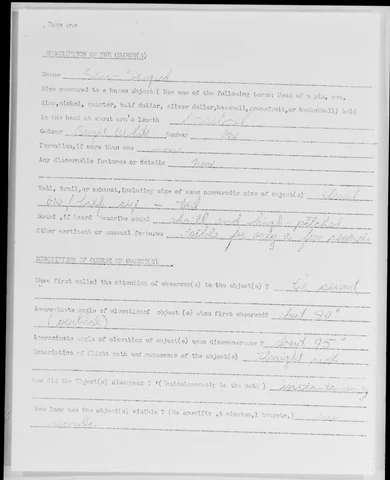 Page one
DESCRIPTION OF THE OBJECT(S)
Shape
Size compared to a known object ( Use one of the following terms: Head of a pin, pea,
dime,nickel, quarter, half dollar, silver dollar,baseball,grapefruit,or basketball) held
in the hand at about arm's length
Colour Bright White Number One
Formation,if more than one
Any discernable features or details None
Tail, trail,or exhaust,including size of same compared to size of object(s)
one/half size - Red
Sound ,if heard describe sound shrill and high-pitched
Other pertinent or unusual features visible for only a few seconds
DESCRIPTION OF COURSE OF OBJECT(S)
What first called the attention of observer(s) to the object(s) ? Its sound
Approximate angle of elevation of object (s) when first observed? about 90°
(vertical)
Approximate angle of elevation of object(s) upon disappearance ? about 95°
Description of flight path and maneuvers of the object(s) Straight
How did the Object(s) disappear ? (Instantaneously to the North) Instantaneously
How long was the object(s) visible ? (Be specific ,5 minutes,1 hour etc.)
seconds